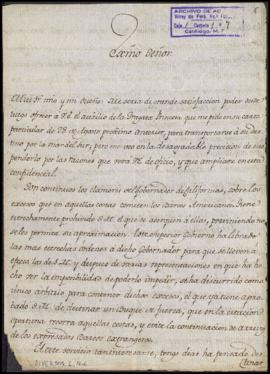 ARCHIVO DE
Caja 1 Carpeta 1 nº 7
Catálogo M.
Exmo Señor.
Muy Sr. mio y mi Dueño. Me seria de grande satisfaccion poder desde
luego ofrecer a V.E. el auxilio de la Fragata Princesa que me pide en su carta
particular de 28 de Agosto proximo anterior, para transportarse a su des
tino por la mar del Sur; pero me veo en la desagradable precision de sus
penderlo por las razones que verá V.E. de oficio, y que ampliaré en esta
confidencial.
Son continuos los clamores del Gobernador de Californias, sobre los
excesos que en aquellas costas cometen los Barcos Americanos. Tiene
estrechamente prohibido S.M. el que se atengan a ellas, previniendo no
se les permita su aproximacion. Este superior Gobierno ha librado
las mas estrechas ordenes a dicho Gobernador para que se lleven a
efecto las de S.M. y despues de varias representaciones en que ha he
cho ver la imposibilidad de poderlo impedir, se ha discurrido como
unico arbitrio para contener dichos excesos, el que ya tiene aproba
do S.M. de destinar un Buque de fuerza, que en la estacion
oportuna recorra aquellas costas, y evite la continuacion de arribos
de los expresados Barcos extrangeros.
A este servicio tan interesante, tengo dias ha pensado des
tinar